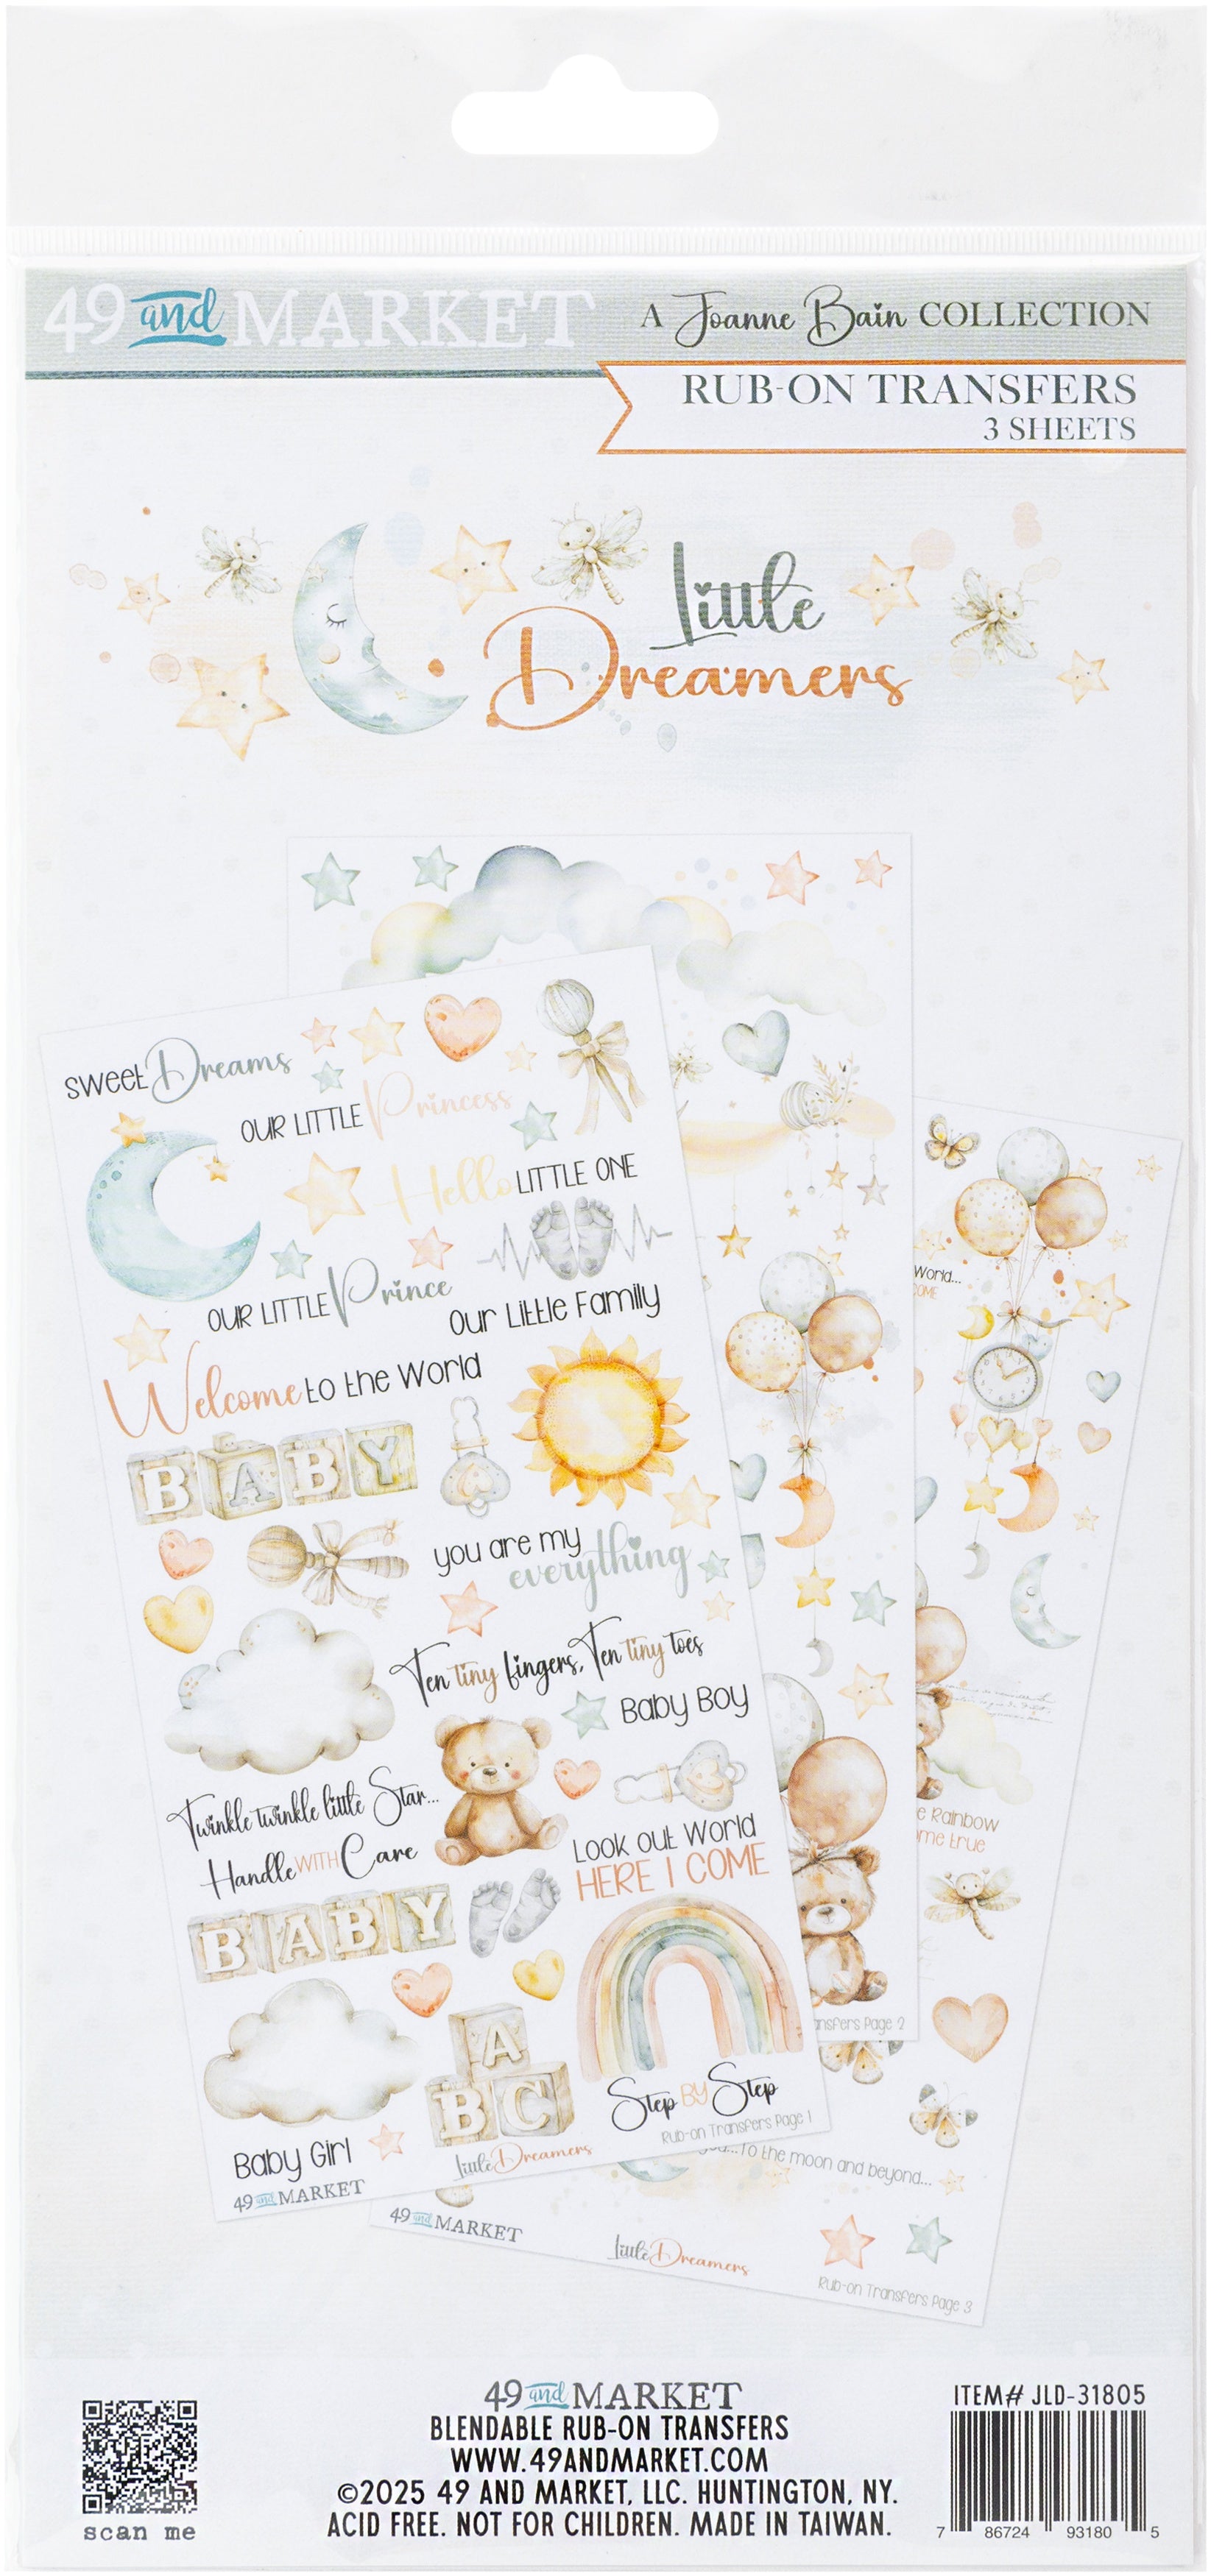 49 and MARKET
A Joanne Bain COLLECTION
RUB-ON TRANSFERS
3 SHEETS
Little
Dreamers
sweet Dreams
OUR LITTLE Princess
Hello LITTLE ONE
OUR LITTLE Prince
Our Little Family
Welcome to the World
BABY
you are my
everything
Ten tiny fingers, Ten tiny toes
Baby Boy
Twinkle twinkle little Star...
Handle WITH Care
Look out World
HERE I COME
BABY
A
BC
Step BY Step
Rub-on Transfers Page 1
Baby Girl
Little Dreamers
49 and MARKET
World...
COME
Rainbow
true
Page 2
...To the moon and beyond...
49 and MARKET
Little Dreamers
Rub-on Transfers Page 3
scan me
49 and MARKET
BLENDABLE RUB-ON TRANSFERS
WWW.49ANDMARKET.COM
©2025 49 AND MARKET, LLC. HUNTINGTON, NY.
ACID FREE. NOT FOR CHILDREN. MADE IN TAIWAN.
ITEM# JLD-31805
7 86724 93180 5